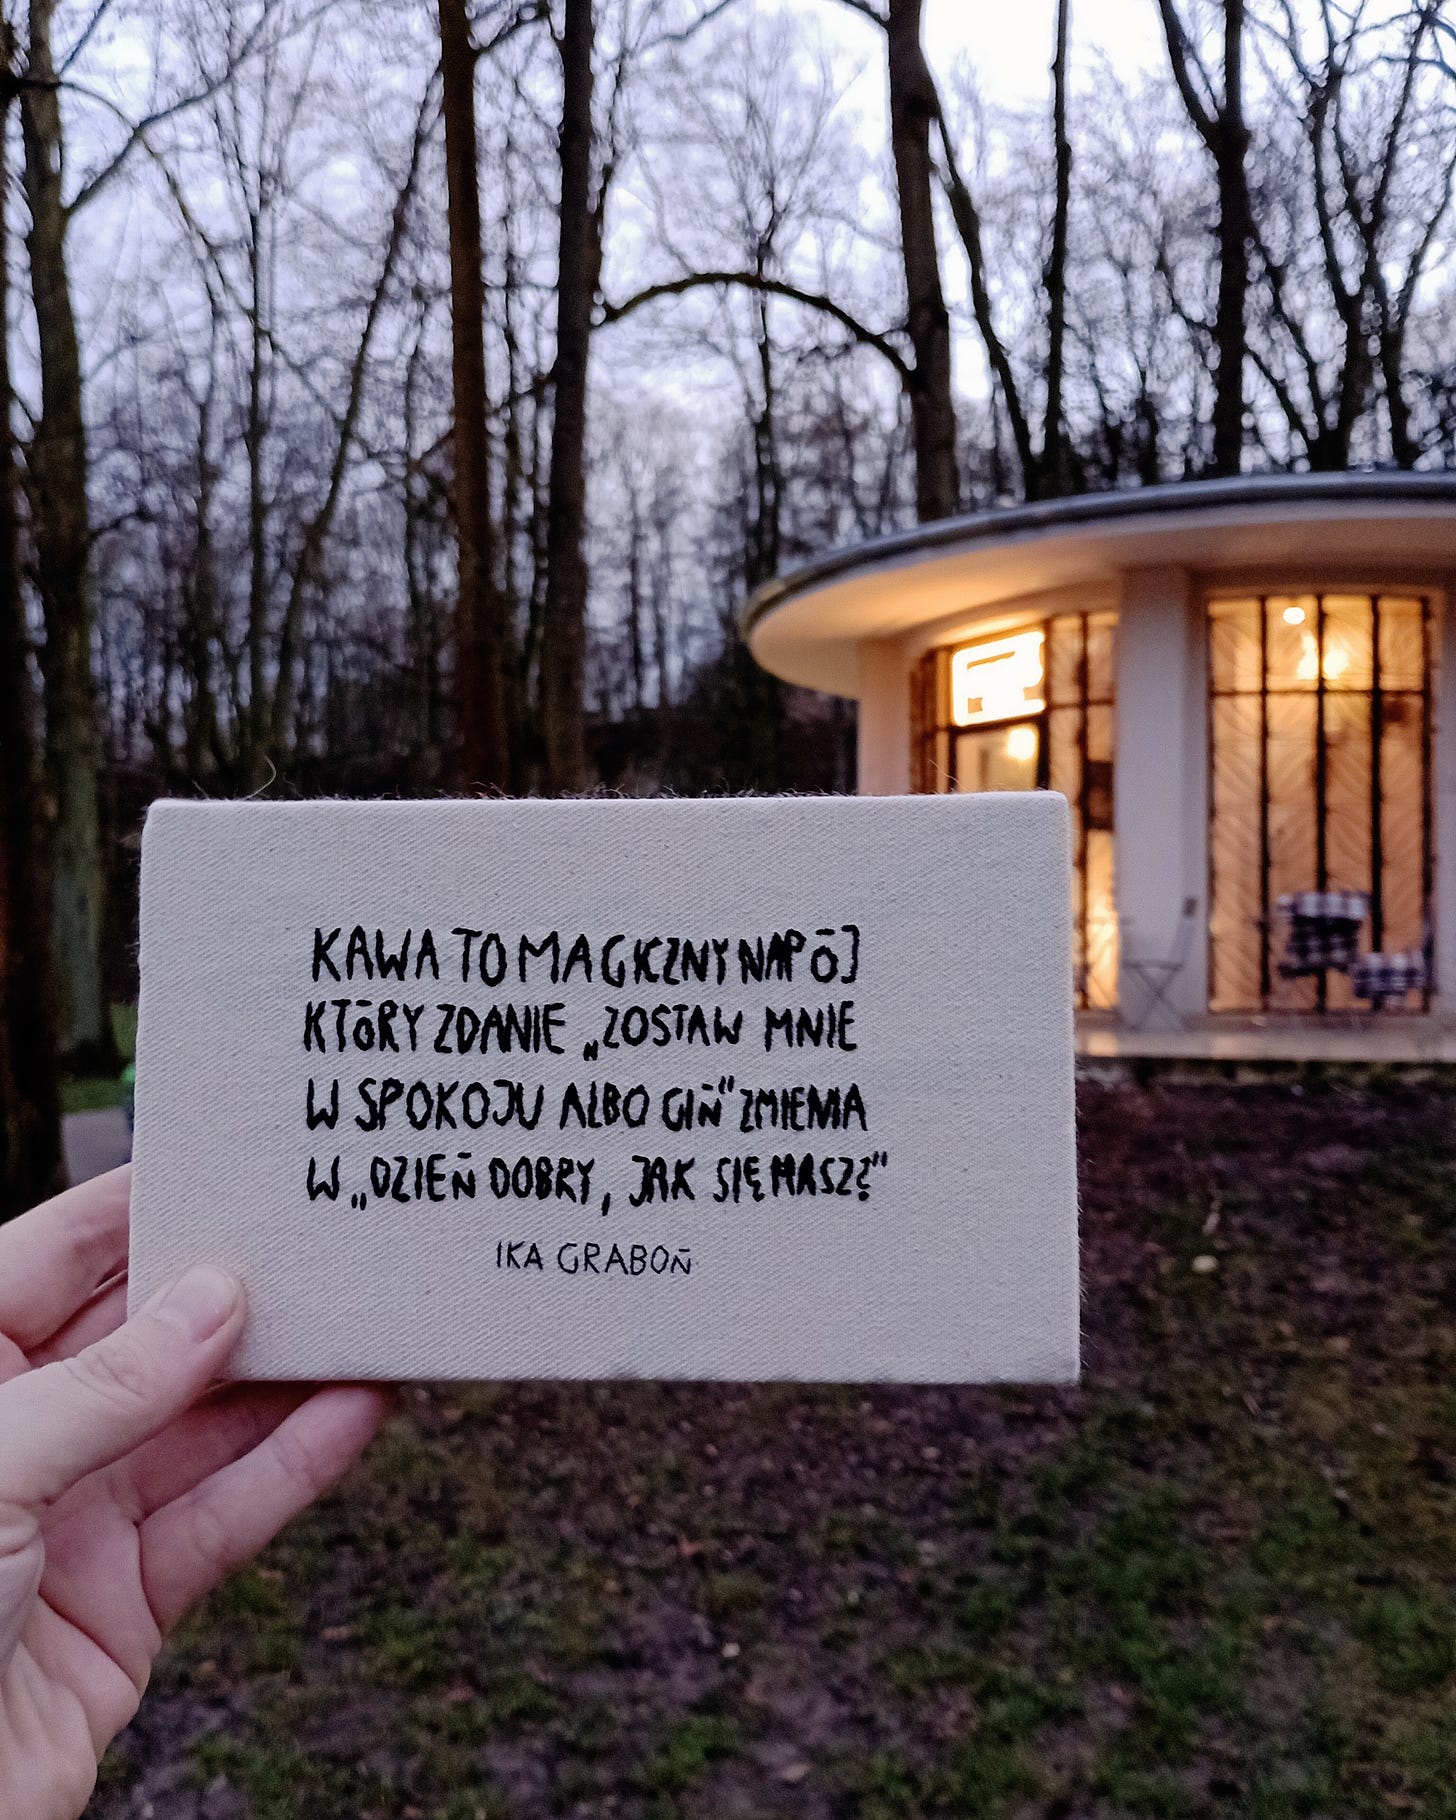 KAWA TO MAGICZNY NAPÓJ
KTÓRY ZDANIE „ZOSTAW MNIE
W SPOKOJU ALBO GIŃ” ZMIENIA
W „DZIEŃ DOBRY, JAK SIĘ MASZ?”
IKA GRABOŃ